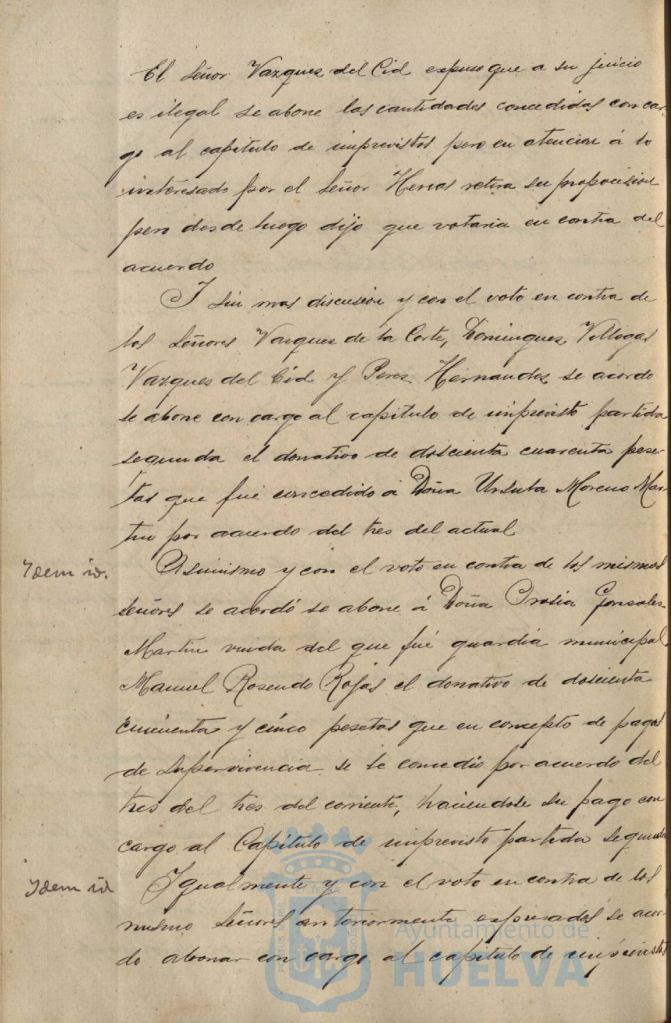 El Señor Vazquez del Cid expuso que a su juicio
es ilegal se abone las cantidades concedidas con car-
go al capitulo de imprevistos pero en atencion á lo
interesado por el Señor Hervas retira su proposicion
pero desde luego dijo que votaria en contra del
acuerdo
Y sin mas discusion y con el voto en contra de
los Señores Vazques de la Corte, Dominguez, Villegas
Vazques del Cid y Perez Hernandez se acordo
se abone con cargo al capitulo de imprevisto partida
segunda el donativo de doscienta cuarenta pese-
tas que fué concedido á Doña Ursula Moreno Mar-
tin por acuerdo del tres del actual
Idem id.
Asimismo y con el voto en contra de los mismos
Señores se acordó se abone á Doña Orosia Gonzalez
Martin viuda del que fué guardia municipal
Manuel Rosendo Rojas el donativo de doscienta
cincuenta y cinco pesetas que en concepto de pagas
de Supervivencia se le concedio por acuerdo del
tres del tres del corriente, haciendose su pago con
cargo al Capitulo de imprevisto partida segunda
Idem id
Igualmente y con el voto en contra de los
mismo Señores anteriormente expresados se acor-
do abonar con cargo al capitulo de imprevistos
Ayuntamiento de
HUELVA